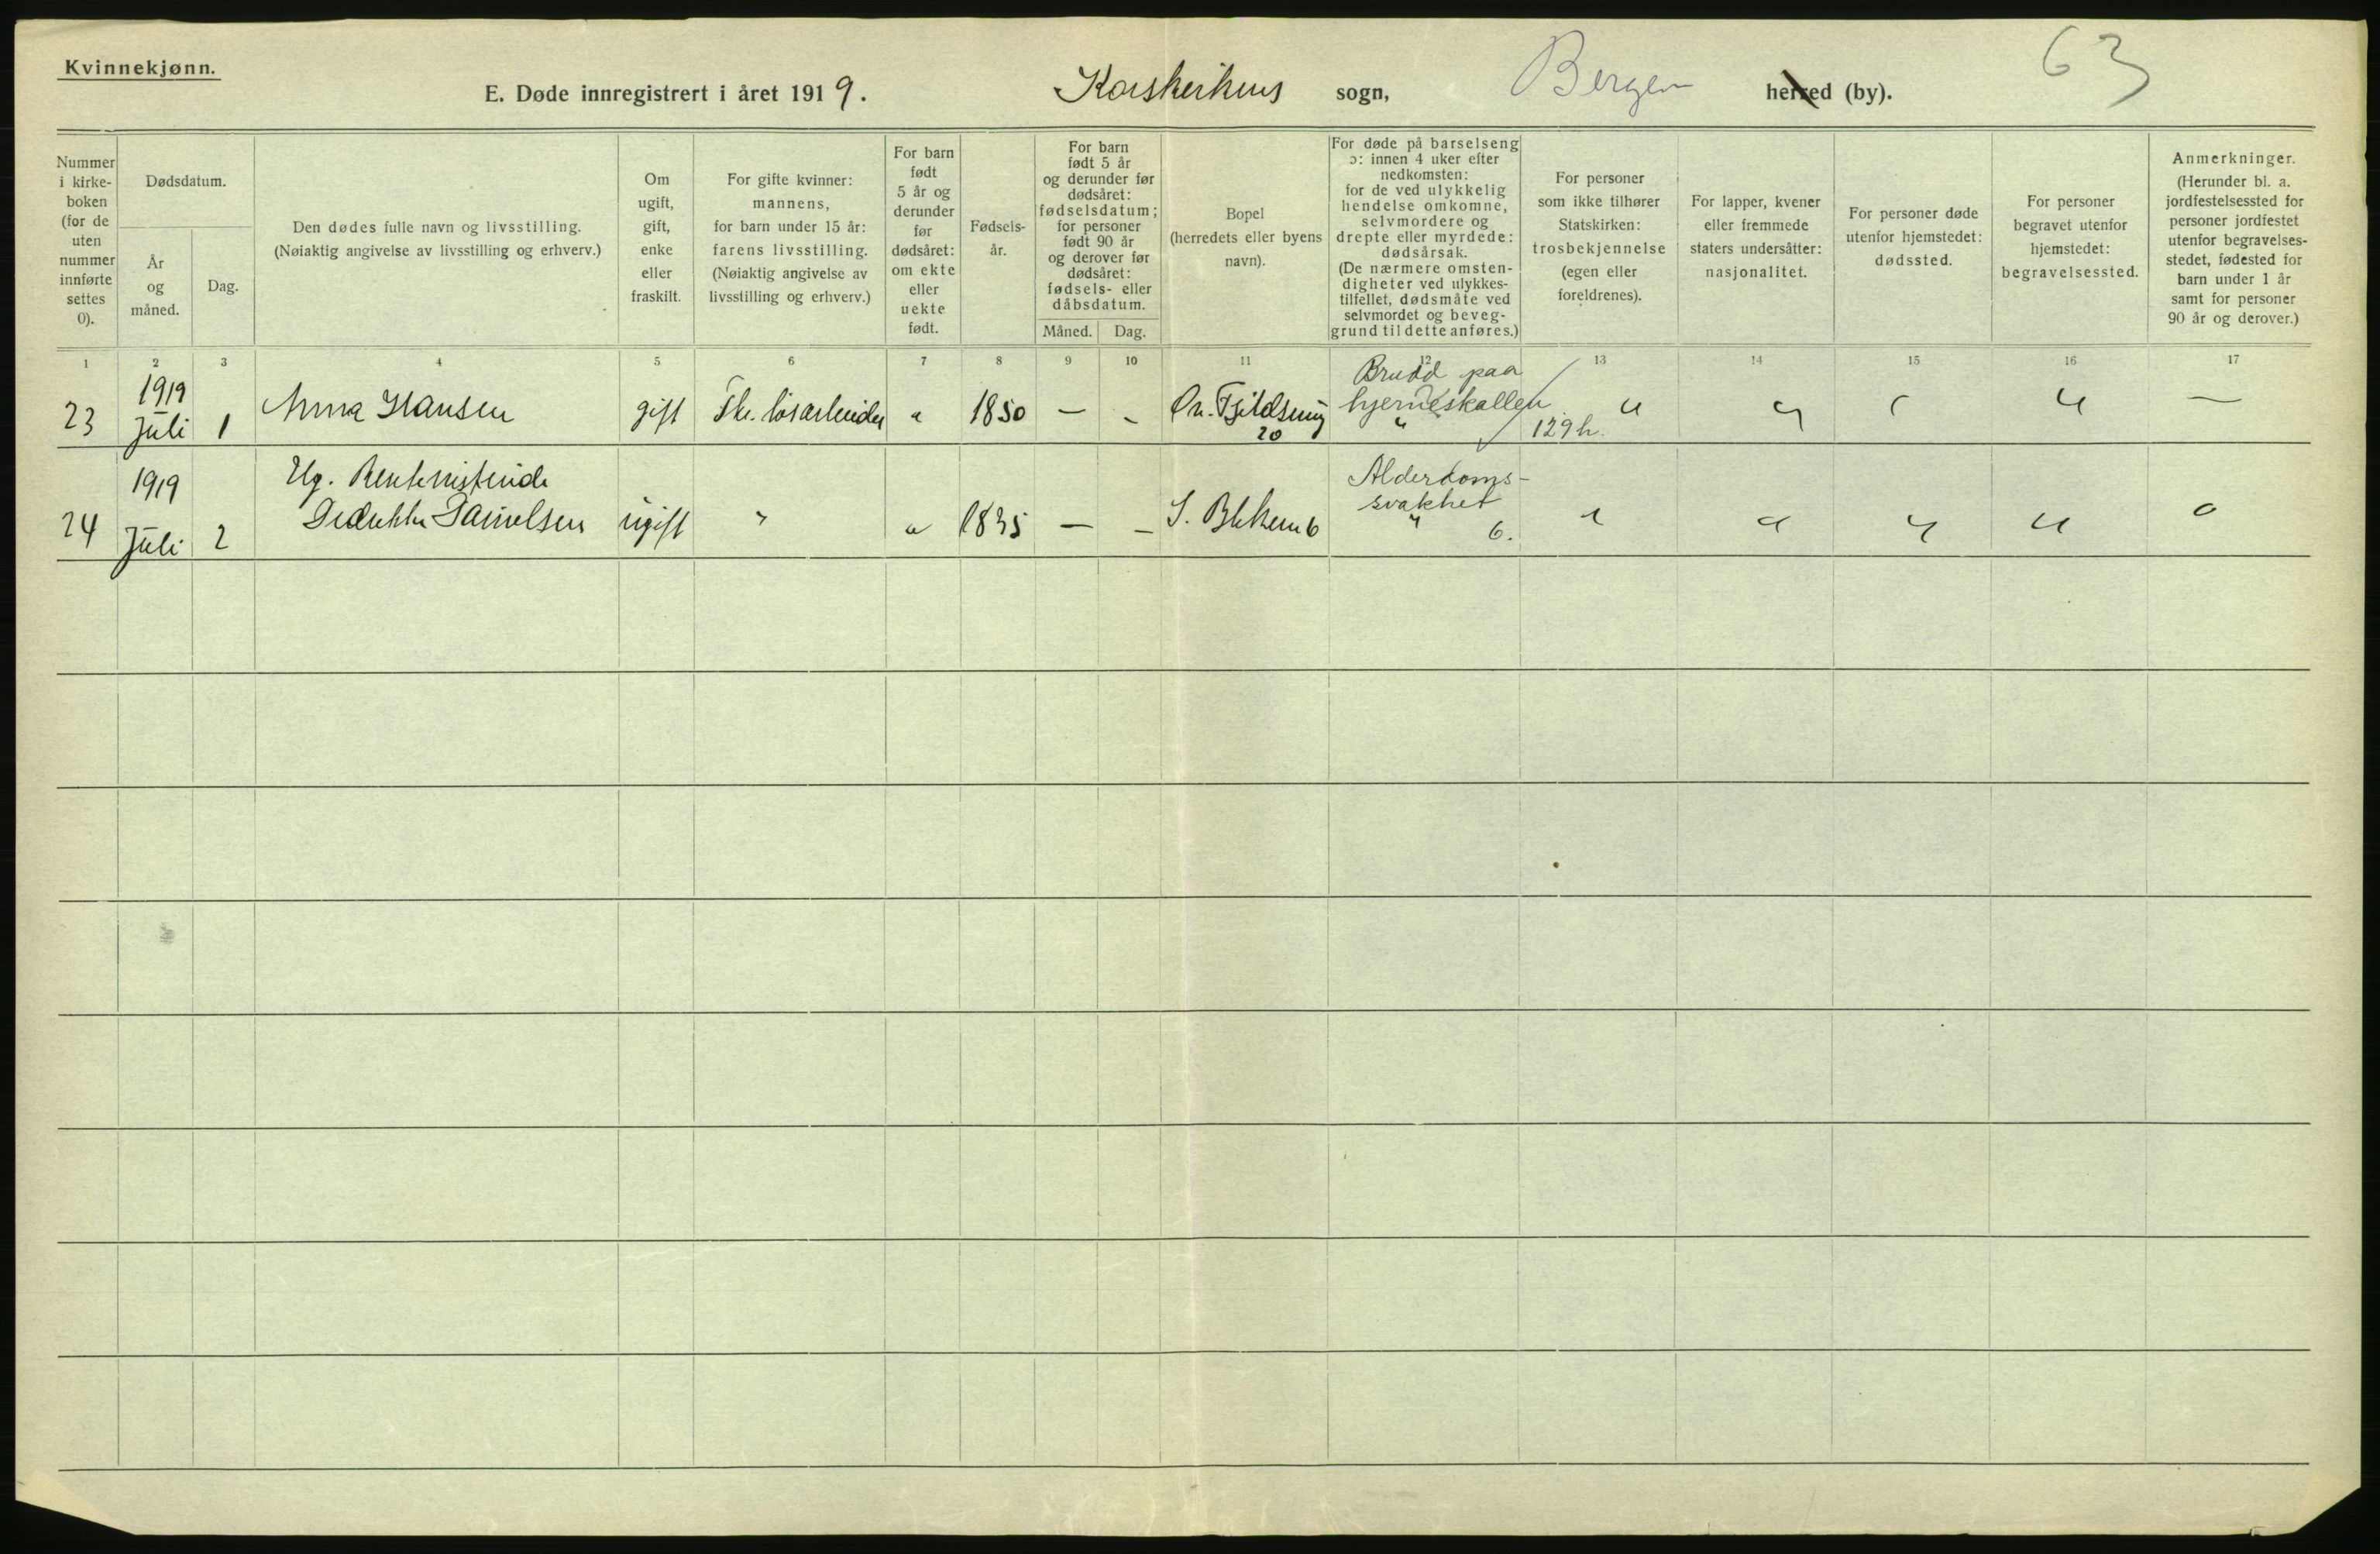 Kvinnekjønn.
E. Døde innregistrert i året 1919. Korskirkens sogn, Bergen herred (by).
63
Nummer i kirke- boken (for de uten nummer innførte settes 0).
Dødsdatum.
År og måned.
Dag.
Den dødes fulle navn og livsstilling.
(Nøiaktig angivelse av livsstilling og erhverv.)
Om ugift, gift, enke eller fraskilt.
For gifte kvinner: mannens, for barn under 15 år: farens livsstilling. (Nøiaktig angivelse av livsstilling og erhverv.)
For barn født 5 år og derunder før dødsåret: om ekte eller uekte født.
Fødsels- år.
For barn født 5 år og derunder før dødsåret: fødselsdatum; for personer født 90 år og derover før dødsåret: fødsels- eller dåbsdatum.
Måned. Dag.
Bopel (herredets eller byens navn).
For døde på barselseng ɔ: innen 4 uker efter nedkomsten: for de ved ulykkelig hendelse omkomne, selvmordere og drepte eller myrdede: dødsårsak. (De nærmere omsten- digheter ved ulykkes- tilfellet, dødsmåte ved selvmordet og beveg- grund til dette anføres.)
For personer som ikke tilhører Statskirken: trosbekjennelse (egen eller foreldrenes).
For lapper, kvener eller fremmede staters undersåtter: nasjonalitet.
For personer døde utenfor hjemstedet: dødssted.
For personer begravet utenfor hjemstedet: begravelsessted.
Anmerkninger. (Herunder bl. a. jordfestelsessted for personer jordfestet utenfor begravelses- stedet, fødested for barn under 1 år samt for personer 90 år og derover.)
1 2 3 4 5 6 7 8 9 10 11 12 13 14 15 16 17
23 1919 Juli 1 Anna Hansen gift løsarbeider " 1850 — - 20 Brudd paa hjerneskallen " 129h. " " " " —
24 1919 Juli 2 Ug. Samuelsen ugift " " 1835 — — 6 Alderdoms- svakhet " 6. " " " " "